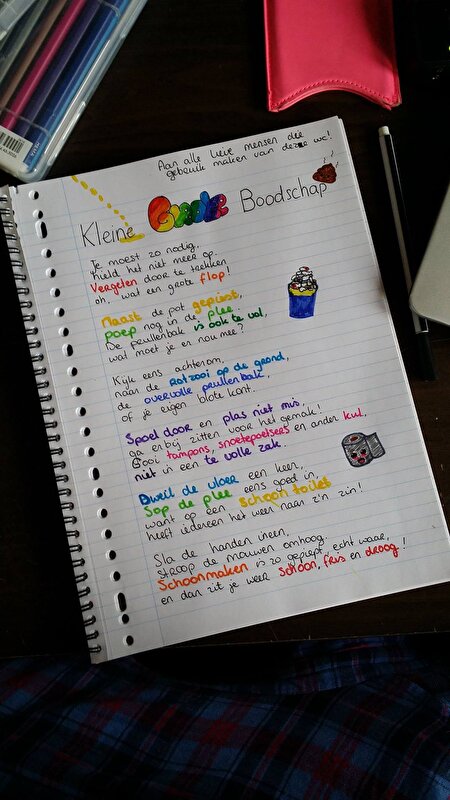 Aan alle lieve mensen die
gebruik maken van deze wc!
Kleine Grote Boodschap
Je moest zo nodig,
hield het niet meer op.
Vergelen door te trekken
oh, wat een grote flop!
Naast de pot gepiest,
poep nog in de plee.
De peullenbak is ook te vol,
wat moet je er nou mee?
Kijk eens achterom,
naar de rotzooi op de grond,
de overvolle peullenbak,
of je eigen blote kont.
Spoel door en plas niet mis,
ga erbij zitten voor het gemak!
Gooi tampons, snoetepoetsers en ander kul,
niet in een te volle zak.
Dweil de vloer een keer,
Sop de plee eens goed in,
want op een schoon toilet
heeft iedereen het weer naar z'n zin!
Sla de handen ineen,
stroop de mouwen omhoog.
Schoonmaken is zo gepiept, echt waar,
en dan zit je weer schoon, fris en droog!